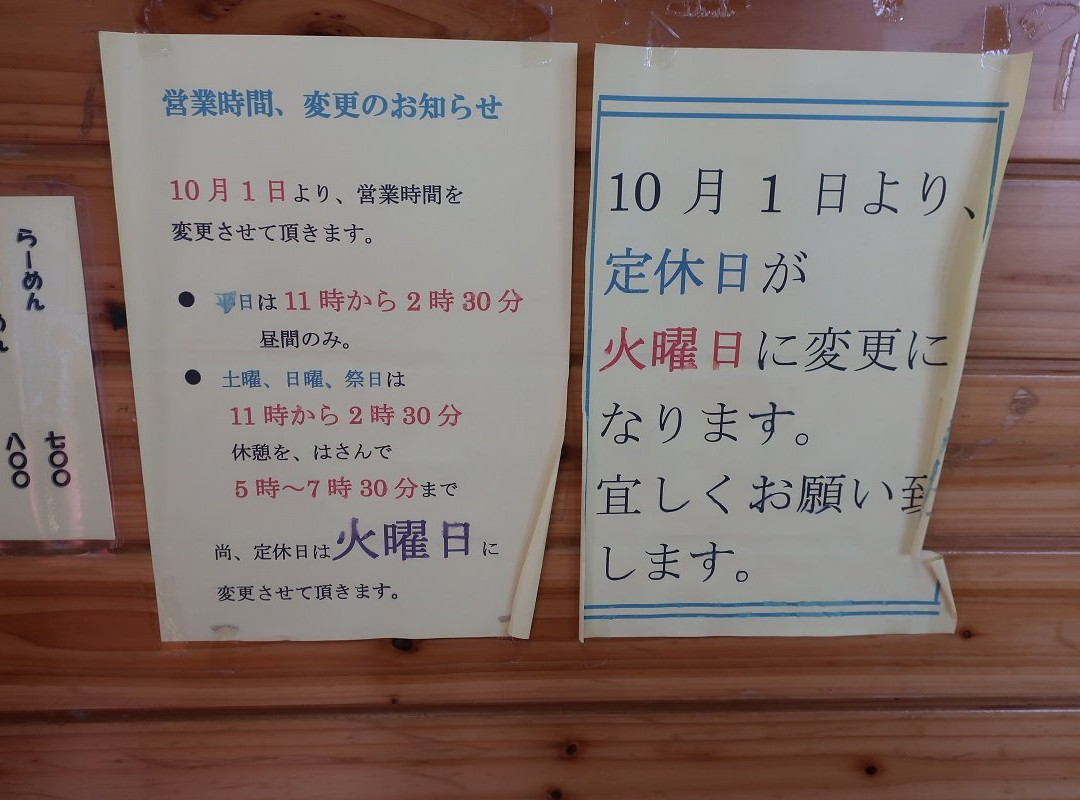 営業時間、変更のお知らせ
10月1日より、営業時間を
変更させて頂きます。
● 平日は11時から2時30分
昼間のみ。
● 土曜、日曜、祭日は
11時から2時30分
休憩を、はさんで
5時～7時30分まで
尚、定休日は火曜日に
変更させて頂きます。
10月1日より、
定休日が
火曜日に変更に
なります。
宜しくお願い致
します。
らーめん
七〇〇
めん
八〇〇